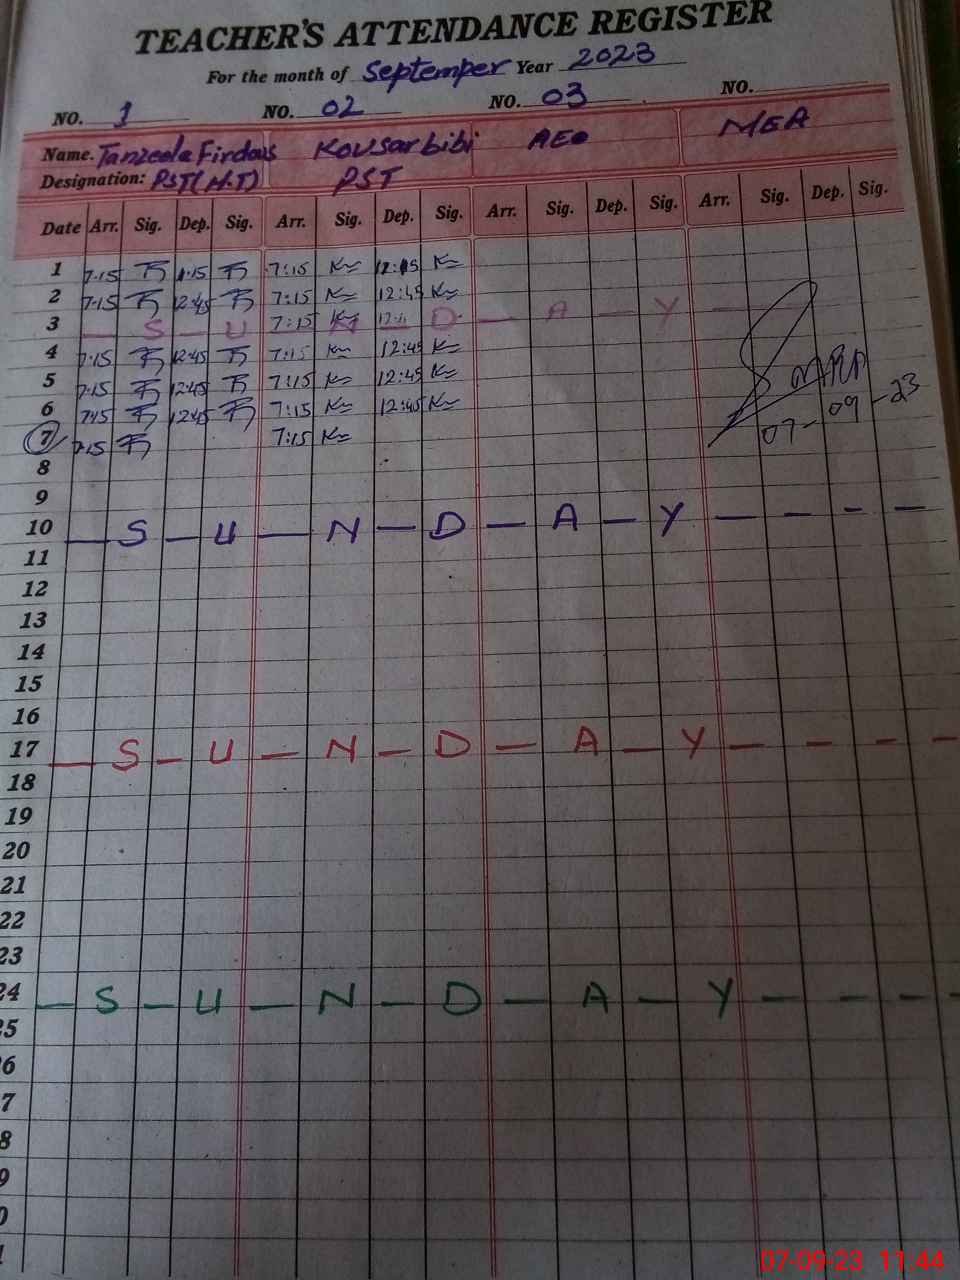 TEACHER'S ATTENDANCE REGISTER
For the month of Septemper Year 2023
NO. 1 NO. 02 NO. 03 NO.
Name. Tanzeela Firdous Kousar bibi AEO MEA
Designation: PST(H.T) PST
Date Arr. Sig. Dep. Sig. Arr. Sig. Dep. Sig. Arr. Sig. Dep. Sig. Arr. Sig. Dep. Sig.
1 7:15 7:15 K
2 7:15 12:45 7:15 K 12:45 K
3 S U N D A Y 7:15 K
4 7:15 12:45 7:15 K 12:45 K
5 7:15 12:45 7:15 K 12:45 K
6 12:45 7:15 K 12:45 K
7 7:15 7:15 K
07-09-23
8
9
10 — S — U — N — D — A — Y — — — —
11
12
13
14
15
16
17 — S — U — N — D — A — Y — — — —
18
19
20
21
22
23
24 — S — U — N — D — A — Y — — — —
25
6
7
8
9
0
07-09-23 11:44